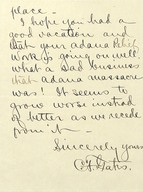 place –
I hope you had a
good vacation and
that your adana Relief
work is going on well.
What a sad business
that adana massacre
was! It seems to
grow worse instead
of better as we recede
from it –
Sincerely yours